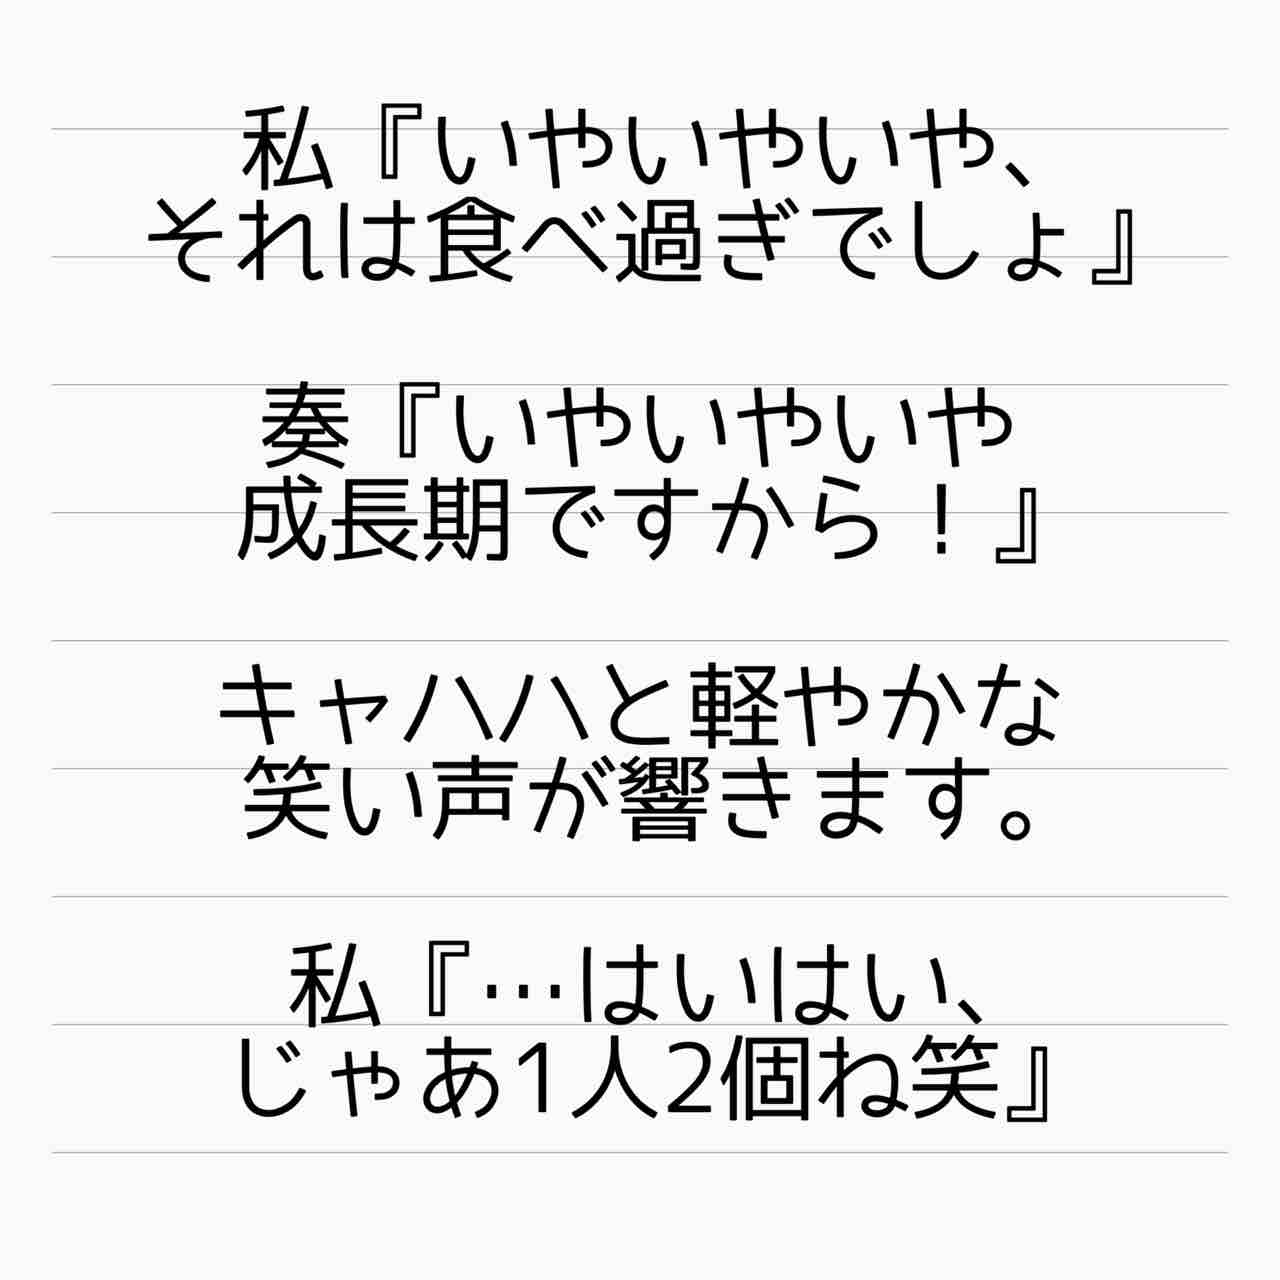 私『いやいやいや、
それは食べ過ぎでしょ』
奏『いやいやいや
成長期ですから！』
キャハハと軽やかな
笑い声が響きます。
私『…はいはい、
じゃあ1人2個ね笑』